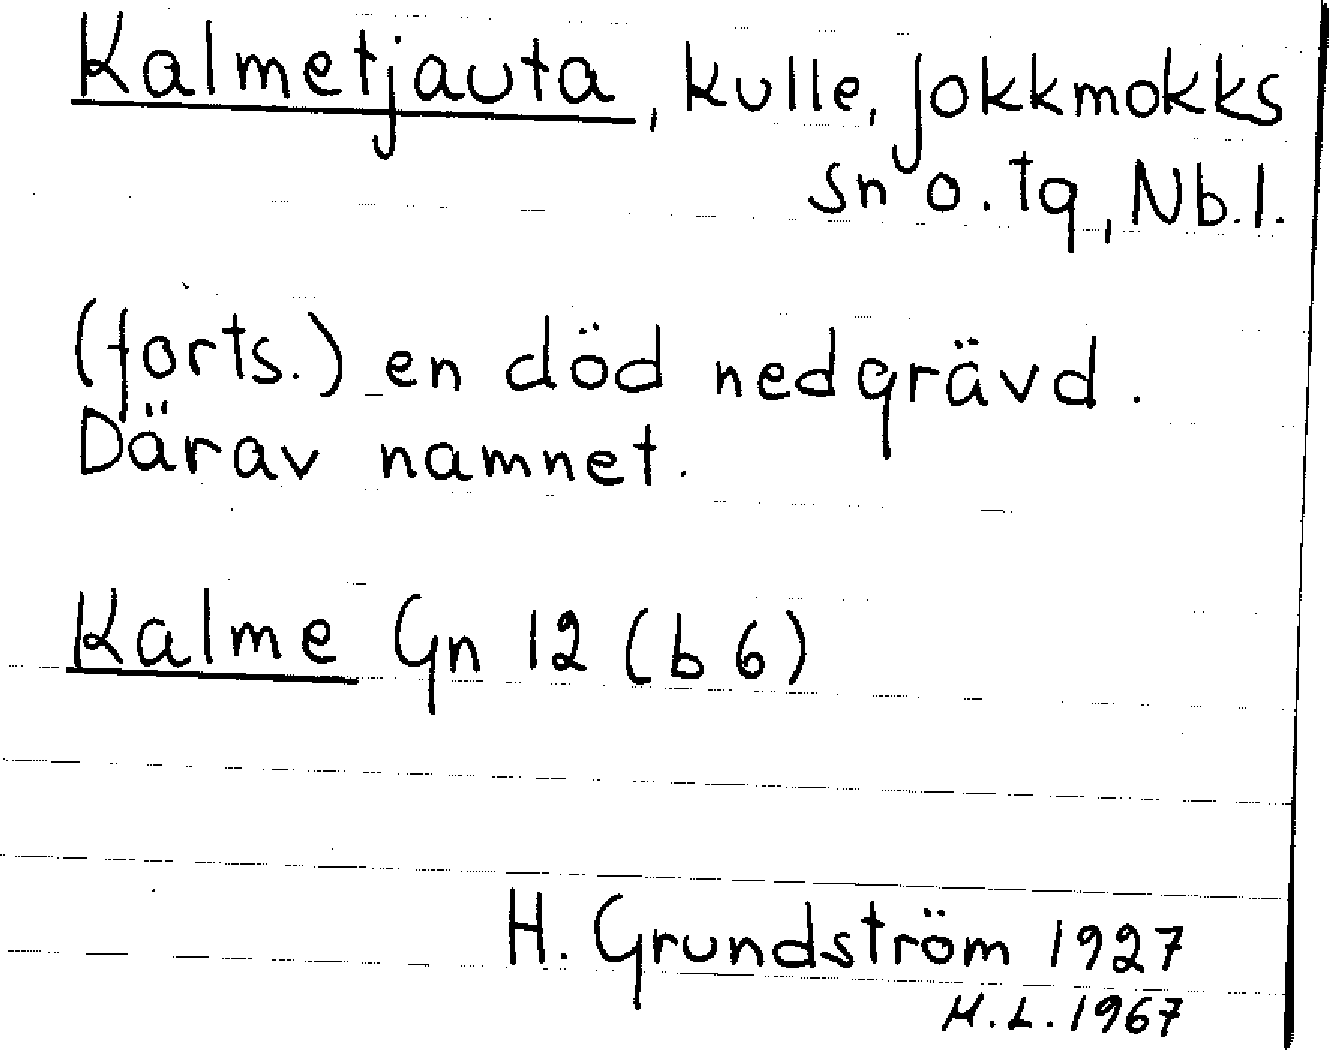 Kalmetjauta, kulle, Jokkmokks
sn o. tg, Nb.l.
(forts.) en död nedgrävd.
Därav namnet.
Kalme Gn 12 (b 6)
H. Grundström 1927
M.L. 1967